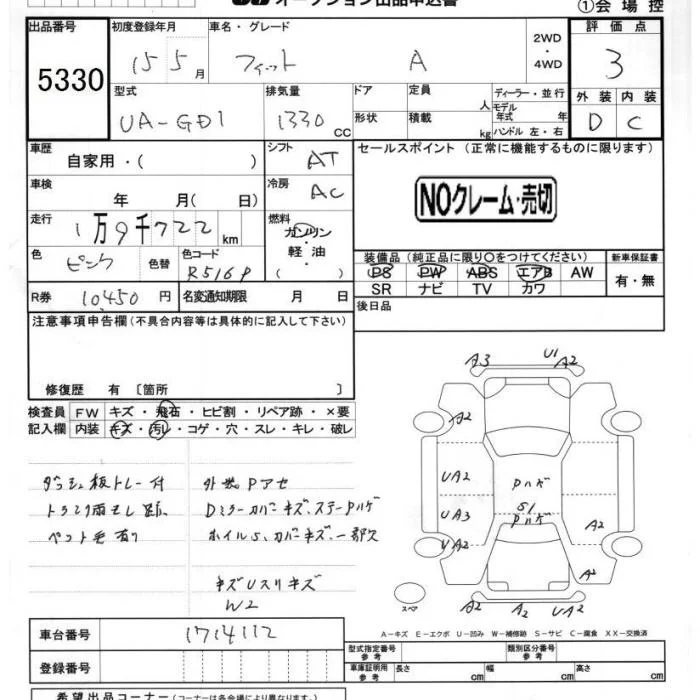 オークション出品申込書 ①会場控
出品番号 初度登録年月 車名・グレード 2WD・4WD 評価点
5330 15 5月 フィット A 3
型式 排気量 ドア 定員 人 ディーラー・並行
UA-GD1 1330 cc 形状 積載 kg モデル年式 年 ハンドル 左・右
外装 内装
D C
車歴 自家用・( ) シフト AT セールスポイント (正常に機能するものに限ります)
車検 年 月( 日) 冷房 AC NOクレーム・売切
走行 1万9千722km 燃料 ガソリン・軽油・( )
色 ピンク 色替 色コード R516P
装備品 (純正品に限り○をつけてください) 新車保証書
PS PW ABS エアB AW 有・無
SR ナビ TV カワ
R券 10450円 名変通知期限 月 日 後日品
注意事項申告欄 (不具合内容等は具体的に記入して下さい)
修復歴 有 〔箇所 〕
検査員記入欄 FW キズ・飛石・ヒビ割・リペア跡・×要
内装 キズ・汚レ・コゲ・穴・スレ・キレ・破レ
ダッシュ板トレー付 外装Pアセ
トランク雨モレ跡 Dミラーカバーキズ、ステーPハゲ
ペット毛有り ホイルS、カバーキズ、一部欠
キズUスリキズ
W2
A3 U1 A2
A2
UA2 Pハゲ
S1
UA3 Pハゲ A2
UA2
A2
スペア A2 A2 UA2
A-キズ E-エクボ U-凹み W-補修跡 S-サビ C-腐食 XX-交換済
車台番号 1714112
登録番号
型式指定番号 参考 類別区分番号 参考
車庫証明用 参考 長さ cm 幅 cm 高さ cm
希望出品コーナー (コーナーは各会場により異なります。)